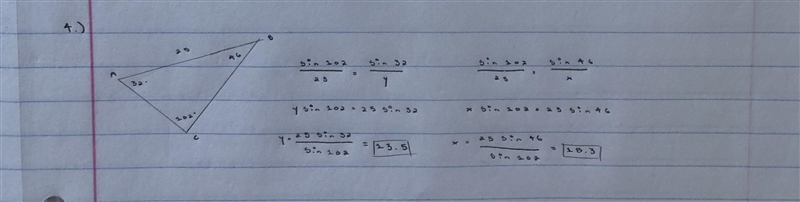 4.)
25
B
46
A
32°
102°
C
sin 102 / 25 = sin 32 / y
y sin 102 = 25 sin 32
y = 25 sin 32 / sin 102 = 13.5
sin 102 / 25 = sin 46 / x
x sin 102 = 25 sin 46
x = 25 sin 46 / sin 102 = 18.3